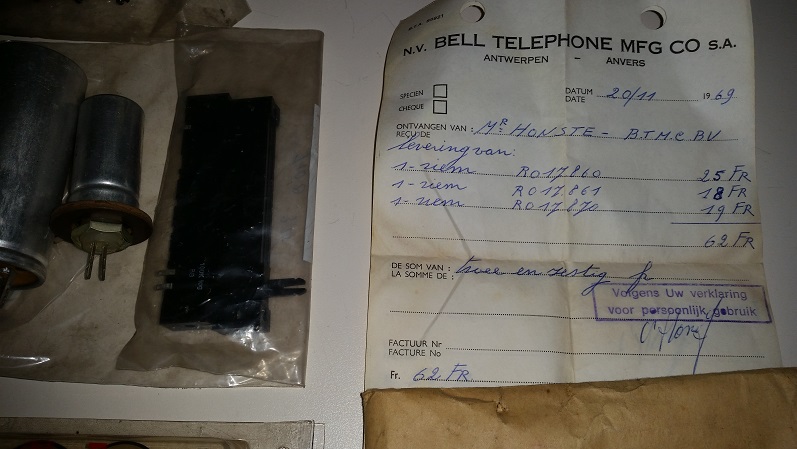 N.V. BELL TELEPHONE MFG CO S.A.
ANTWERPEN - ANVERS
SPECIËN
CHÈQUE
DATUM
DATE 20/11 1969
ONTVANGEN VAN : Mr HONSTE - B.T.M.C. BV
REÇU DE
levering van:
1-riem R017.860 25 FR
1-riem R017.861 18 FR
1-riem R017.870 19 FR
62 FR
DE SOM VAN : twee en zestig fr
LA SOMME DE :
Volgens Uw verklaring
voor persoonlijk gebruik
FACTUUR Nr
FACTURE No
Fr. 62 FR